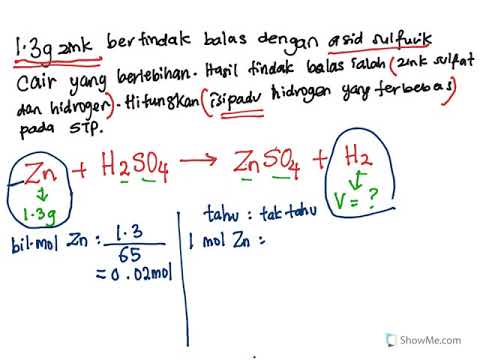 1.3g zink bertindak balas dengan asid sulfurik
cair yang berlebihan. Hasil tindak balas ialah (zink sulfat
dan hidrogen). Hitungkan (isipadu hidrogen yang terbebas)
pada STP.
Zn + H2SO4 → ZnSO4 + H2
1.3g
V = ?
bil.mol Zn : 1.3
65
= 0.02mol
tahu : tak tahu
1 mol Zn :
ShowMe.com